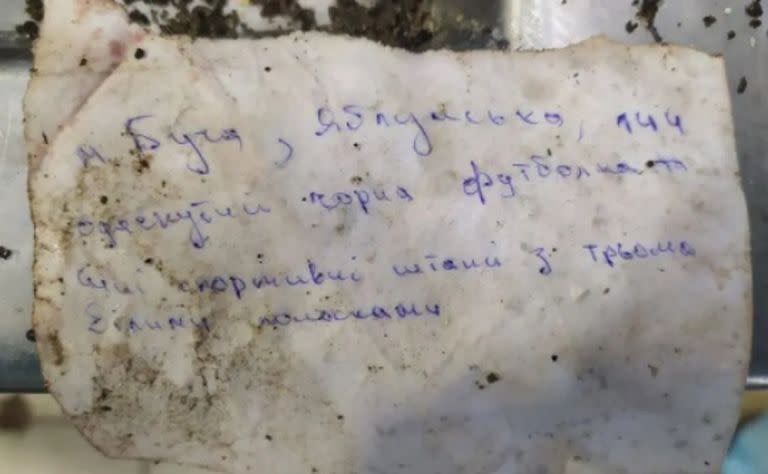 м Буча, Яблунська, 144
одягнутий чорна футболка та
сині спортивні штани з трьома
білими полосками